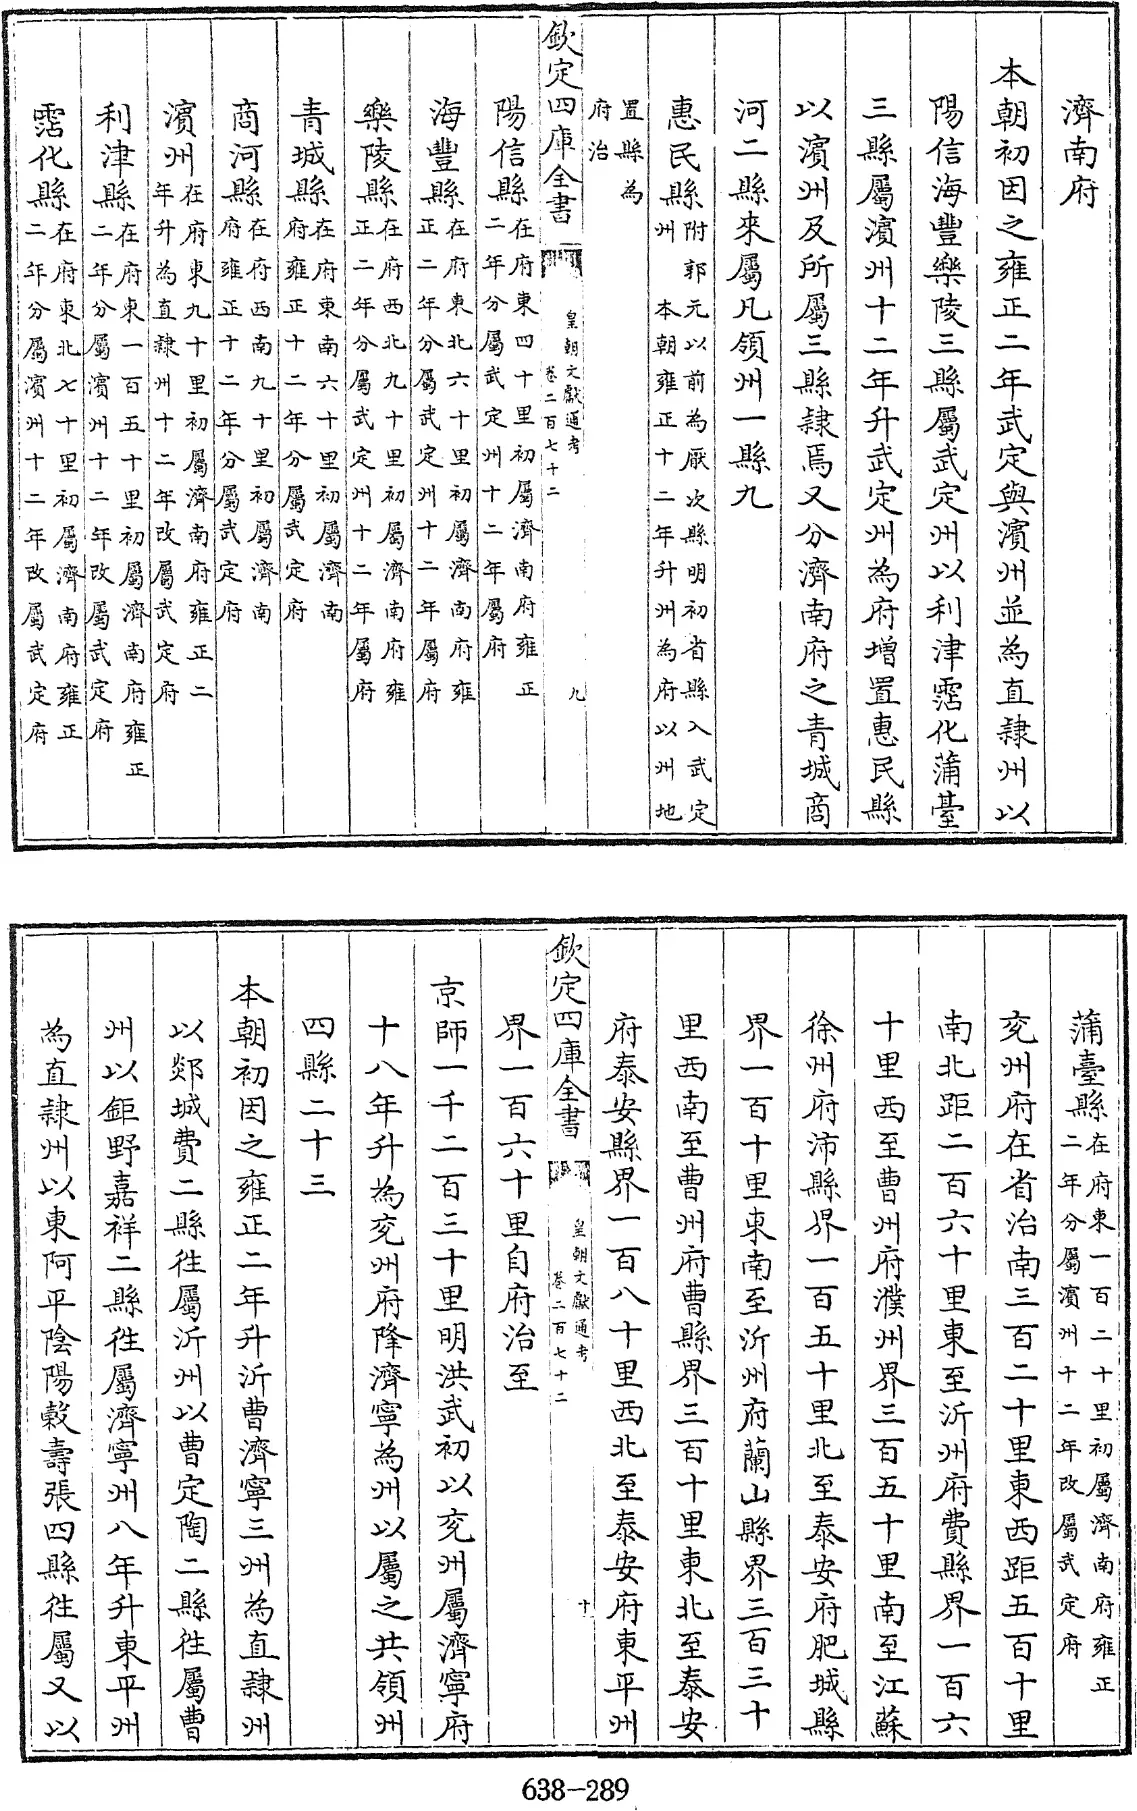 濟南府
本朝初因之雍正二年武定與濱州並為直隸州以
陽信海豐樂陵三縣屬武定州以利津霑化蒲臺
三縣屬濱州十二年升武定州為府增置惠民縣
以濱州及所屬三縣隸焉又分濟南府之青城商
河二縣來屬凡領州一縣九
惠民縣附郭元以前為厭次縣明初省縣入武定
州本朝雍正十二年升州為府以州地
置縣為
府治
欽定四庫全書
皇朝文獻通考
卷二百七十二
九
陽信縣在府東四十里初屬濟南府雍正
二年分屬武定州十二年屬府
海豐縣在府東北六十里初屬濟南府雍
正二年分屬武定州十二年屬府
樂陵縣在府西北九十里初屬濟南府雍
正二年分屬武定州十二年屬府
青城縣在府東南六十里初屬濟南
府雍正十二年分屬武定府
商河縣在府西南九十里初屬濟南
府雍正十二年分屬武定府
濱州在府東九十里初屬濟南府雍正二
年升為直隸州十二年改屬武定府
利津縣在府東一百五十里初屬濟南府雍正
二年分屬濱州十二年改屬武定府
霑化縣在府東北七十里初屬濟南府雍正
二年分屬濱州十二年改屬武定府
蒲臺縣在府東一百二十里初屬濟南府雍正
二年分屬濱州十二年改屬武定府
兗州府在省治南三百二十里東西距五百十里
南北距二百六十里東至沂州府費縣界一百六
十里西至曹州府濮州界三百五十里南至江蘇
徐州府沛縣界一百五十里北至泰安府肥城縣
界一百十里東南至沂州府蘭山縣界三百三十
里西南至曹州府曹縣界三百十里東北至泰安
府泰安縣界一百八十里西北至泰安府東平州
欽定四庫全書
皇朝文獻通考
卷二百七十二
十
界一百六十里自府治至
京師一千二百三十里明洪武初以兗州屬濟寧府
十八年升為兗州府降濟寧為州以屬之共領州
四縣二十三
本朝初因之雍正二年升沂曹濟寧三州為直隸州
以郯城費二縣徃屬沂州以曹定陶二縣徃屬曹
州以鉅野嘉祥二縣徃屬濟寧州八年升東平州
為直隸州以東阿平陰陽榖壽張四縣徃屬又以
638-289